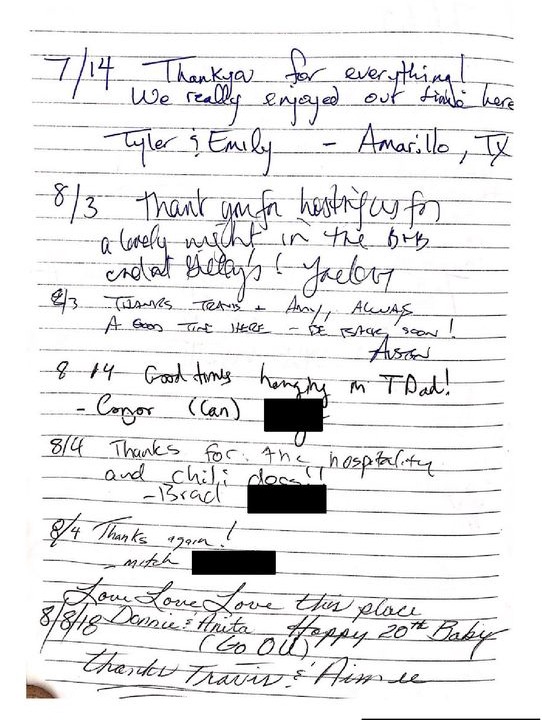 7/14 Thankyou for everything!
We really enjoyed out time here
Tyler & Emily - Amarillo, TX
8/3 Thank you for hosting us for
a lovely night in the B+B
and at
8/3 THANKS TRAVIS + Amy, ALWAYS
A GOOD TIME HERE - BE BACK SOON!
Austin
8 14 Good times hanging in TDad!
- Conor (Can)
8/4 Thanks for the hospitality
and chili dogs!!
- Brad
8/4 Thanks again!
- mitch
Love Love Love this place
8/8/18 Donnie & Anita Happy 20th Baby
(Go OU)
thanks Travis & Aimee